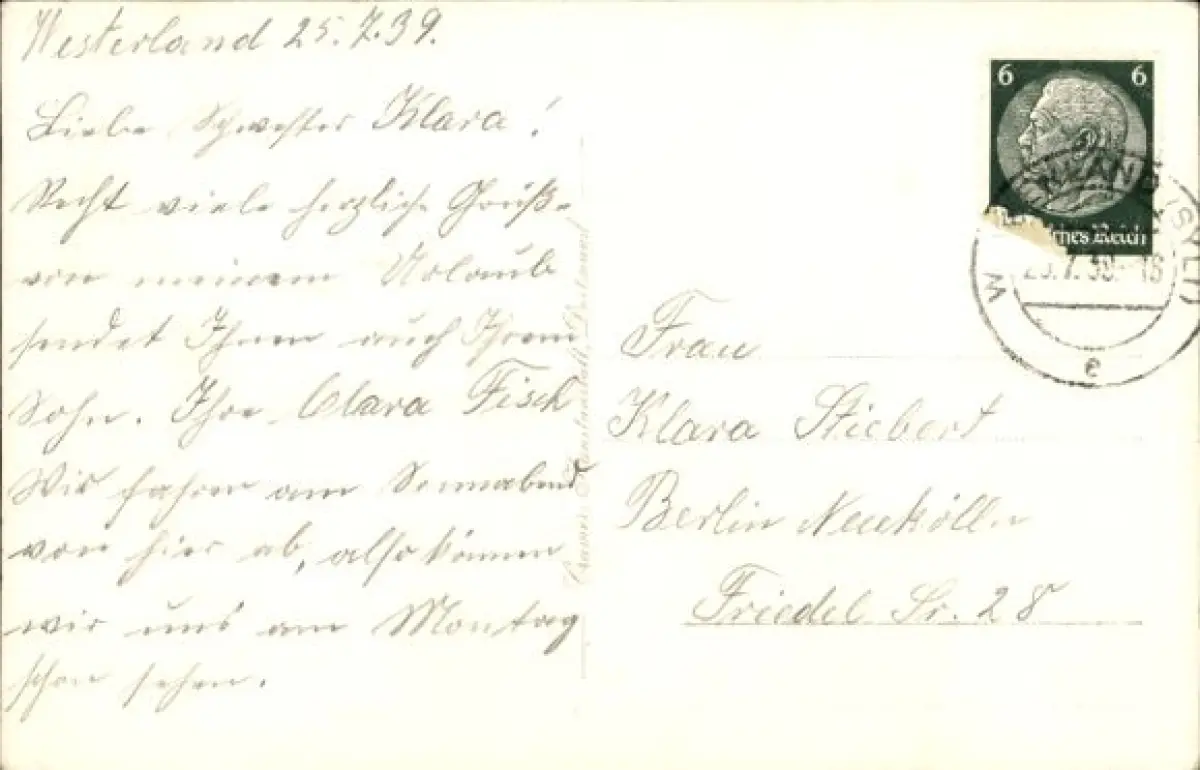 Westerland 25.7.39.
Liebe Schwester Klara!
Recht viele herzliche Grüße
von meinem Urlaub
sendet Ihnen auch Ihrem
Sohn. Ihre Clara Fisch
Wir fahren am Sonnabend
von hier ab, also können
wir uns am Montag
schon sehen.
6 6
sches Reich
(SYLT)
25.7.39.-16
e
Frau
Klara Stiebert
Berlin Neukölln
Friedel Sr. 28